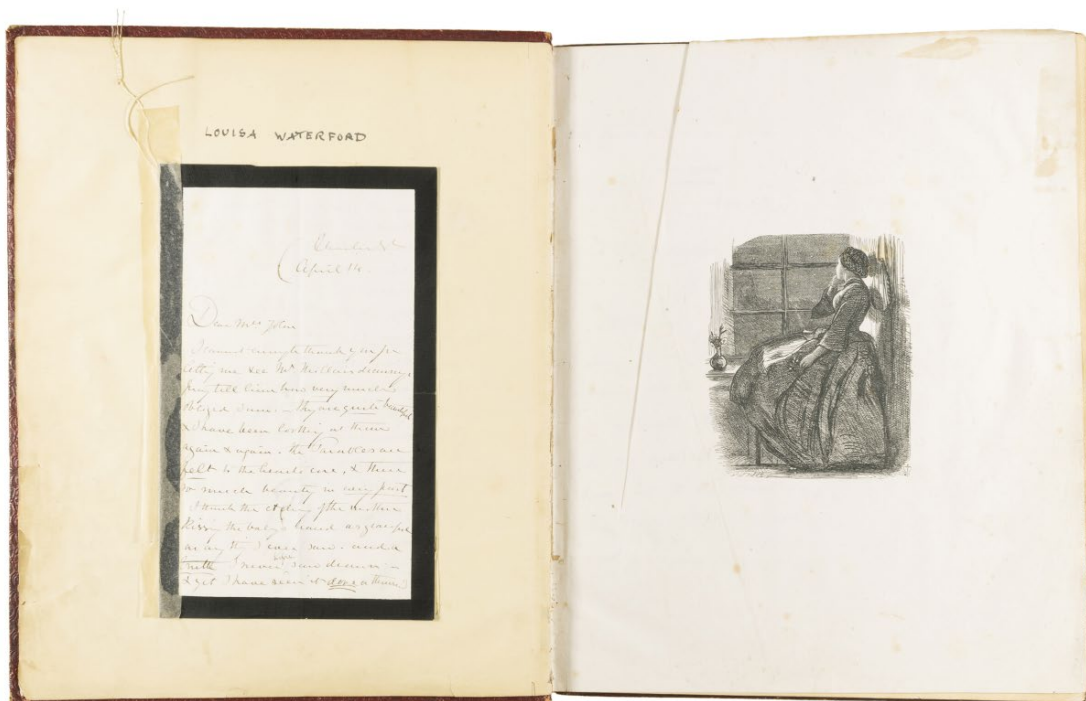 LOUISA WATERFORD
April 14
Dear Mrs John
I cannot enough thank you for
letting me see Mr drawings
pray tell him how very much
obliged I am. — They are quite beautiful
& I have been looking at them
again & again. the Parables are
felt to the heart's core, & there
so much beauty in every part
I think the etching of the mother
Kissing the baby's hand as graceful
as any thing I ever saw. and a
truth I never saw drawn —
& yet I have seen it done a thousand